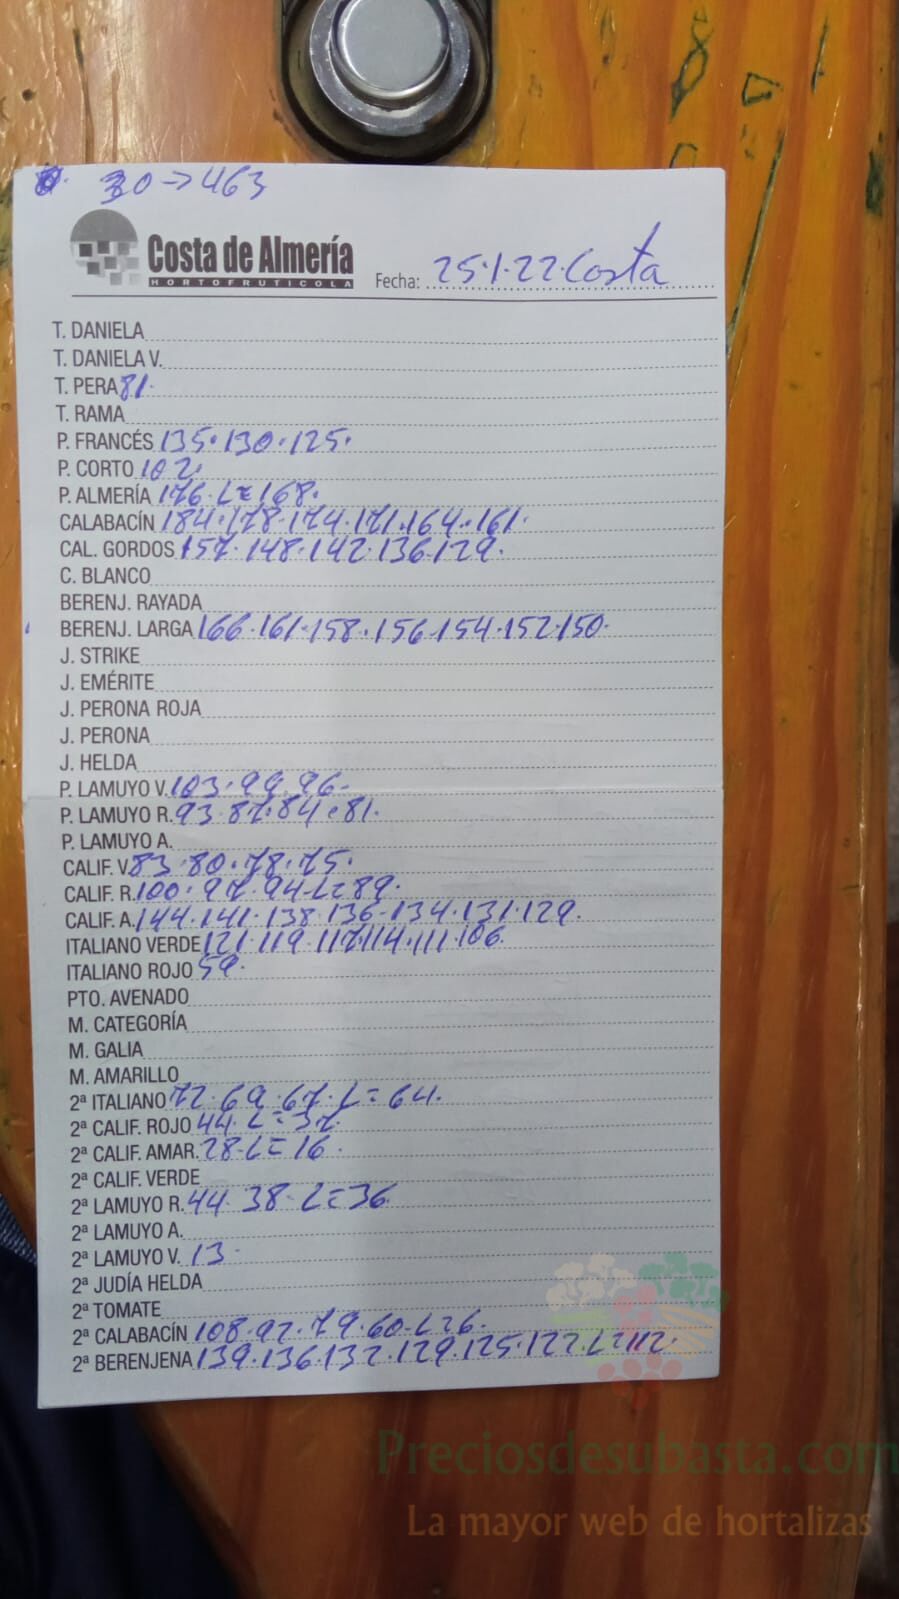 30->463
Costa de Almería
HORTOFRUTICOLA
Fecha: 25·1·22·Costa
T. DANIELA
T. DANIELA V.
T. PERA 81·
T. RAMA
P. FRANCÉS 135·130·125·
P. CORTO 102·
P. ALMERÍA 176·L=168·
CALABACÍN 184·178·174·171·164·161·
CAL. GORDOS 157·148·142·136·129·
C. BLANCO
BERENJ. RAYADA
BERENJ. LARGA 166·161·158·156·154·152·150·
J. STRIKE
J. EMÉRITE
J. PERONA ROJA
J. PERONA
J. HELDA
P. LAMUYO V. 103·99·96·
P. LAMUYO R. 93·87·84·81·
P. LAMUYO A.
CALIF. V. 83·80·78·75·
CALIF. R. 100·97·94·L=89·
CALIF. A. 144·141·138·136·134·131·129·
ITALIANO VERDE 121·119·117·114·111·106·
ITALIANO ROJO 59·
PTO. AVENADO
M. CATEGORÍA
M. GALIA
M. AMARILLO
2ª ITALIANO 72·69·67·L=64·
2ª CALIF. ROJO 44·L=37·
2ª CALIF. AMAR. 28·L=16·
2ª CALIF. VERDE
2ª LAMUYO R. 44·38·L=36
2ª LAMUYO A.
2ª LAMUYO V. 13·
2ª JUDÍA HELDA
2ª TOMATE
2ª CALABACÍN 108·92·79·60·L=6·
2ª BERENJENA 139·136·132·129·125·122·L=112·
Preciosdesubasta.com
La mayor web de hortalizas